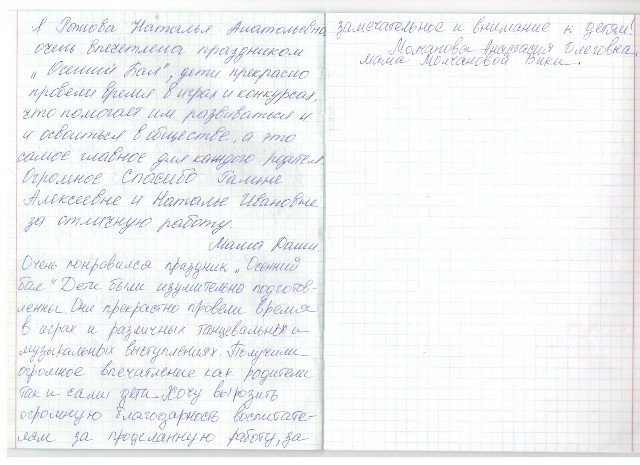 Я Ротова Наталья Анатольевна
очень впечетлена праздником
„Осенний Бал", дети прекрасно
провели время в играх и конкурсах,
что помогает им развиваться и
и освоиться в обществе, а это
самое главное для каждого родителя
Огромное Спасибо Галине
Алексеевне и Наталье Ивановне
за отличную работу.
Мама Даши
Очень понравился праздник „Осенний
бал" Дети были изумительно подготов-
ленны. Они прекрастно провели время
в играх и различных танцевальных и
музыкальных выступлениях. Получили
огромное впечатление как родители
так и сами дети. Хочу вырозить
огромную благодарность воспитате-
лям за проделанную работу, за-
замечательное и внимание к детям!
Молчанова Анастасия Олеговна.
мама Молчановой Вики.